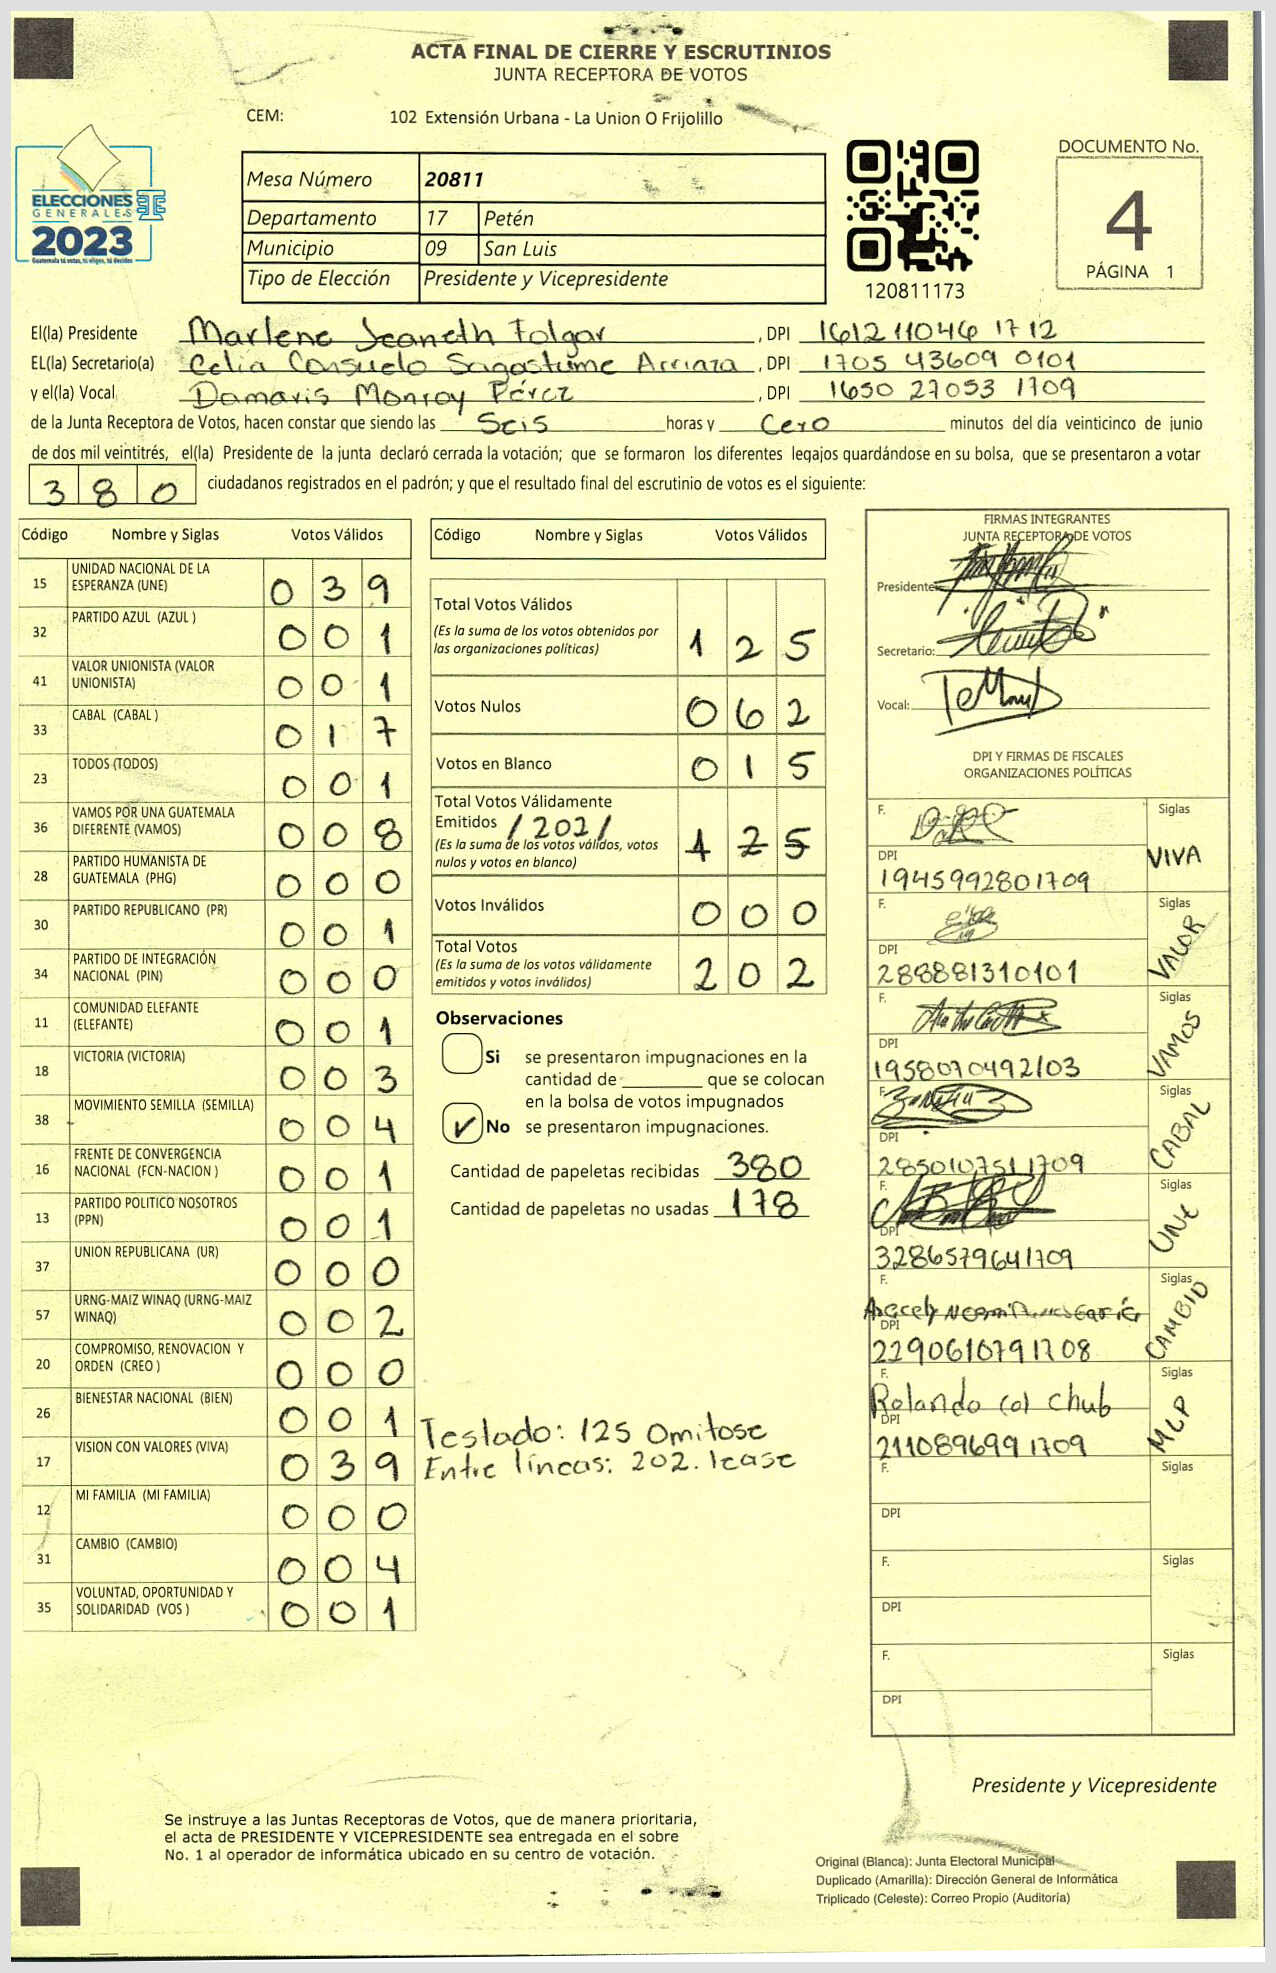 ACTA FINAL DE CIERRE Y ESCRUTINIOS
JUNTA RECEPTORA DE VOTOS
CEM: 102 Extensión Urbana - La Union O Frijolillo
ELECCIONES
GENERALES
2023
Guatemala tú votas, tú eliges, tú decides
Mesa Número 20811
Departamento 17 Petén
Municipio 09 San Luis
Tipo de Elección Presidente y Vicepresidente
120811173
DOCUMENTO No.
4
PÁGINA 1
El(la) Presidente Marlene Jeaneth Folgar , DPI 1612 11046 1712
EL(la) Secretario(a) Celia Consuelo Sagastume Arriaza , DPI 1705 43609 0101
y el(la) Vocal Damaris Monroy Pérez , DPI 1650 27053 1709
de la Junta Receptora de Votos, hacen constar que siendo las Seis horas y Cero minutos del día veinticinco de junio
de dos mil veintitrés, el(la) Presidente de la junta declaró cerrada la votación; que se formaron los diferentes legajos quardándose en su bolsa, que se presentaron a votar
380 ciudadanos registrados en el padrón; y que el resultado final del escrutinio de votos es el siguiente:
Código Nombre y Siglas Votos Válidos
15 UNIDAD NACIONAL DE LA ESPERANZA (UNE) 0 3 9
32 PARTIDO AZUL (AZUL ) 0 0 1
41 VALOR UNIONISTA (VALOR UNIONISTA) 0 0 1
33 CABAL (CABAL ) 0 1 7
23 TODOS (TODOS) 0 0 1
36 VAMOS POR UNA GUATEMALA DIFERENTE (VAMOS) 0 0 8
28 PARTIDO HUMANISTA DE GUATEMALA (PHG) 0 0 0
30 PARTIDO REPUBLICANO (PR) 0 0 1
34 PARTIDO DE INTEGRACIÓN NACIONAL (PIN) 0 0 0
11 COMUNIDAD ELEFANTE (ELEFANTE) 0 0 1
18 VICTORIA (VICTORIA) 0 0 3
38 MOVIMIENTO SEMILLA (SEMILLA) 0 0 4
16 FRENTE DE CONVERGENCIA NACIONAL (FCN-NACION ) 0 0 1
13 PARTIDO POLITICO NOSOTROS (PPN) 0 0 1
37 UNION REPUBLICANA (UR) 0 0 0
57 URNG-MAIZ WINAQ (URNG-MAIZ WINAQ) 0 0 2
20 COMPROMISO, RENOVACION Y ORDEN (CREO ) 0 0 0
26 BIENESTAR NACIONAL (BIEN) 0 0 1
17 VISION CON VALORES (VIVA) 0 3 9
12 MI FAMILIA (MI FAMILIA) 0 0 0
31 CAMBIO (CAMBIO) 0 0 4
35 VOLUNTAD, OPORTUNIDAD Y SOLIDARIDAD (VOS ) 0 0 1
Código Nombre y Siglas Votos Válidos
Total Votos Válidos
(Es la suma de los votos obtenidos por
las organizaciones politicas) 1 2 5
Votos Nulos 0 6 2
Votos en Blanco 0 1 5
Total Votos Válidamente
Emitidos /202/
(Es la suma de los votos válidos, votos
nulos y votos en blanco) 1 2 5
Votos Inválidos 0 0 0
Total Votos
(Es la suma de los votos válidamente
emitidos y votos inválidos) 2 0 2
Observaciones
Si se presentaron impugnaciones en la
cantidad de ________ que se colocan
en la bolsa de votos impugnados
✓ No se presentaron impugnaciones.
Cantidad de papeletas recibidas 380
Cantidad de papeletas no usadas 178
Teslado: 125 Omitose
Entre líneas: 202. lease
FIRMAS INTEGRANTES
JUNTA RECEPTORA DE VOTOS
Presidente:
Secretario:
Vocal:
DPI Y FIRMAS DE FISCALES
ORGANIZACIONES POLÍTICAS
F. Siglas
DPI VIVA
1945992801709
F. Siglas
DPI VALOR
288881310101
F. Siglas
DPI VAMOS
1958070492103
F. Siglas
DPI CABAL
2850107511709
F. Siglas
DPI UNE
3286579641709
F. Siglas
Aracely
DPI CAMBIO
2290610791708
F. Siglas
Rolando col Chub
DPI MLP
2110896991709
F. Siglas
DPI
F. Siglas
DPI
F. Siglas
DPI
Presidente y Vicepresidente
Se instruye a las Juntas Receptoras de Votos, que de manera prioritaria,
el acta de PRESIDENTE Y VICEPRESIDENTE sea entregada en el sobre
No. 1 al operador de informática ubicado en su centro de votación.
Original (Blanca): Junta Electoral Municipal
Duplicado (Amarilla): Dirección General de Informática
Triplicado (Celeste): Correo Propio (Auditoría)